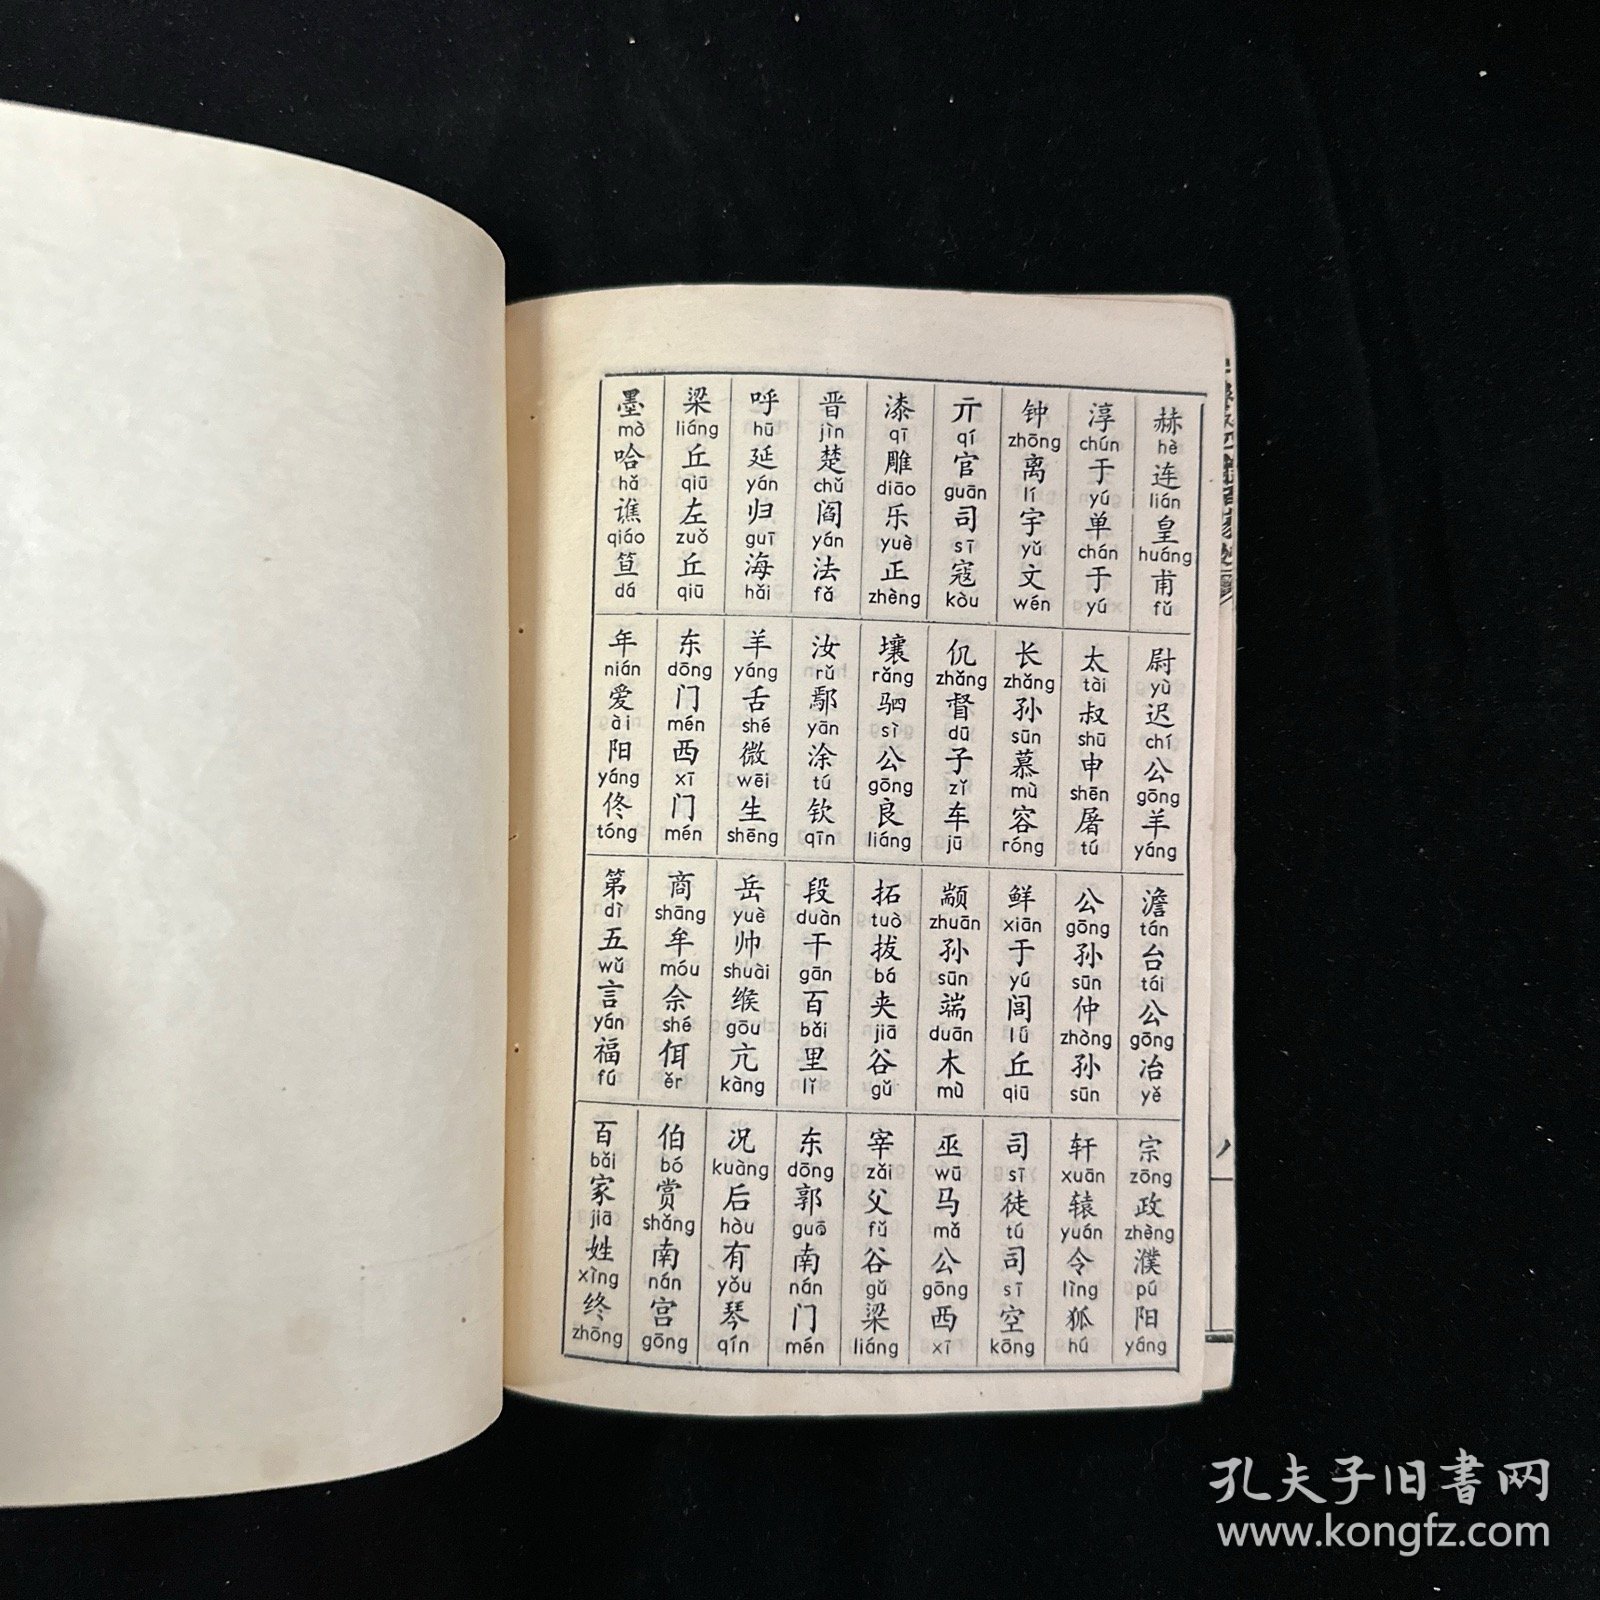 赫 hè 连 lián 皇 huáng 甫 fǔ
尉 yù 迟 chí 公 gōng 羊 yáng
澹 tán 台 tái 公 gōng 冶 yě
宗 zōng 政 zhèng 濮 pú 阳 yáng
淳 chún 于 yú 单 chán 于 yú
太 tài 叔 shū 申 shēn 屠 tú
公 gōng 孙 sūn 仲 zhòng 孙 sūn
轩 xuān 辕 yuán 令 lìng 狐 hú
钟 zhōng 离 lí 宇 yǔ 文 wén
长 zhǎng 孙 sūn 慕 mù 容 róng
鲜 xiān 于 yú 闾 lǘ 丘 qiū
司 sī 徒 tú 司 sī 空 kōng
亓 qí 官 guān 司 sī 寇 kòu
仉 zhǎng 督 dū 子 zǐ 车 jū
颛 zhuān 孙 sūn 端 duān 木 mù
巫 wū 马 mǎ 公 gōng 西 xī
漆 qī 雕 diāo 乐 yuè 正 zhèng
壤 rǎng 驷 sì 公 gōng 良 liáng
拓 tuò 拔 bá 夹 jiā 谷 gǔ
宰 zǎi 父 fǔ 谷 gǔ 梁 liáng
晋 jìn 楚 chǔ 阎 yán 法 fǎ
汝 rǔ 鄢 yān 涂 tú 钦 qīn
段 duàn 干 gān 百 bǎi 里 lǐ
东 dōng 郭 guō 南 nán 门 mén
呼 hū 延 yán 归 guī 海 hǎi
羊 yáng 舌 shé 微 wēi 生 shēng
岳 yuè 帅 shuài 缑 gōu 亢 kàng
况 kuàng 后 hòu 有 yǒu 琴 qín
梁 liáng 丘 qiū 左 zuǒ 丘 qiū
东 dōng 门 mén 西 xī 门 mén
商 shāng 牟 móu 佘 shé 佴 ěr
伯 bó 赏 shǎng 南 nán 宫 gōng
墨 mò 哈 hǎ 谯 qiáo 笪 dá
年 nián 爱 ài 阳 yáng 佟 tóng
第 dì 五 wǔ 言 yán 福 fú
百 bǎi 家 jiā 姓 xìng 终 zhōng
孔夫子旧书网
www.kongfz.com